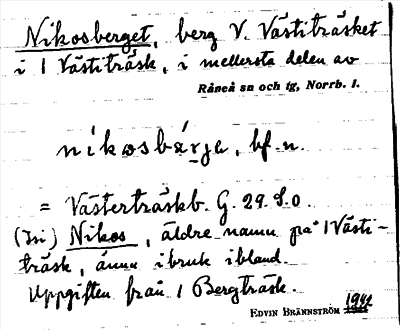 Nikosberget, berg V. Västiträsket
i 1 Västiträsk, i mellersta delen av
Råneå sn och tg, Norrb. l.
níkosbárja, bf. n.
= Västerträskb. G. 29. S.O.
(Iri) Nikos, äldre namn på 1 Västi-
träsk, ännu i bruk ibland.
Uppgiften från 1 Bergträsk.
EDVIN BRÄNNSTRÖM 1942